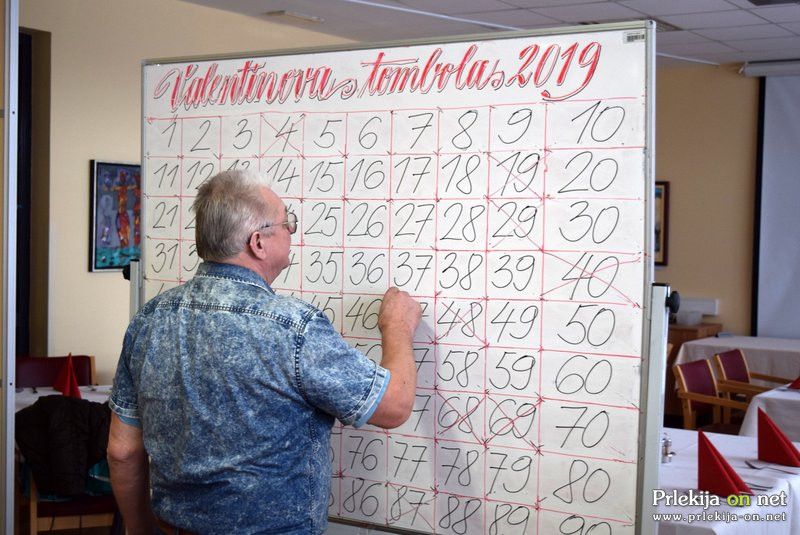 Valentinova tombola 2019
1 2 3 4 5 6 7 8 9 10
11 12 13 14 15 16 17 18 19 20
21 25 26 27 28 29 30
31 35 36 37 38 39 40
45 46 47 48 49 50
57 58 59 60
67 68 69 70
76 77 78 79 80
86 87 88 89 90
Prlekija on net
www.prlekija-on.net